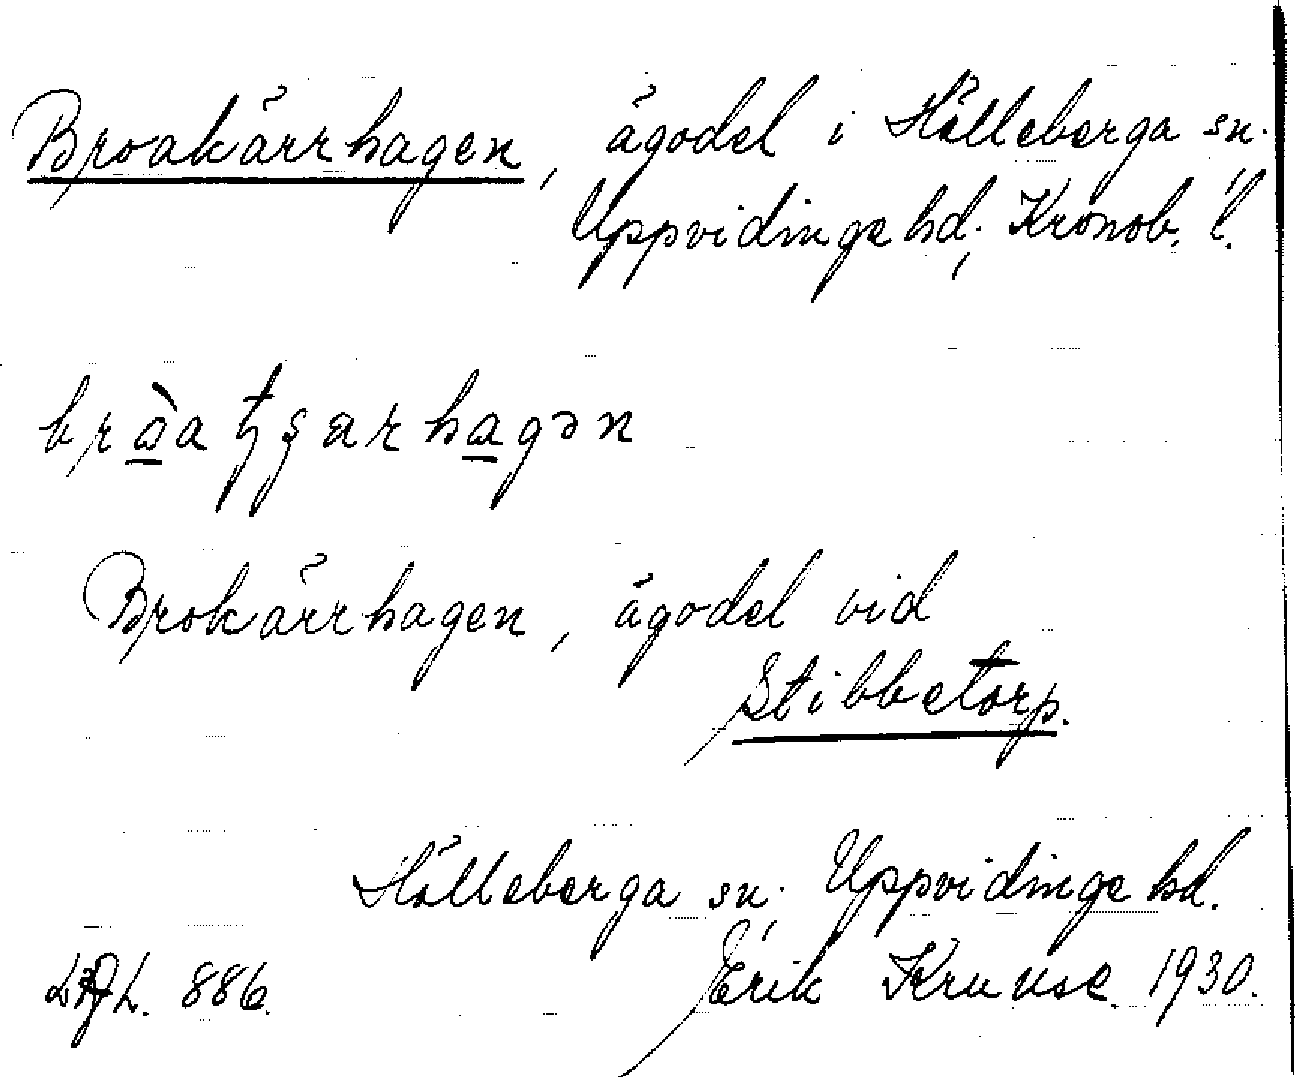 Broakärrhagen, ägodel i Hälleberga sn.
Uppvidinge hd; Kronob. l.
Brokärrhagen, ägodel vid
Stibbetorp.
Hälleberga sn; Uppvidinge hd.
886. Erik Kruuse. 1930.